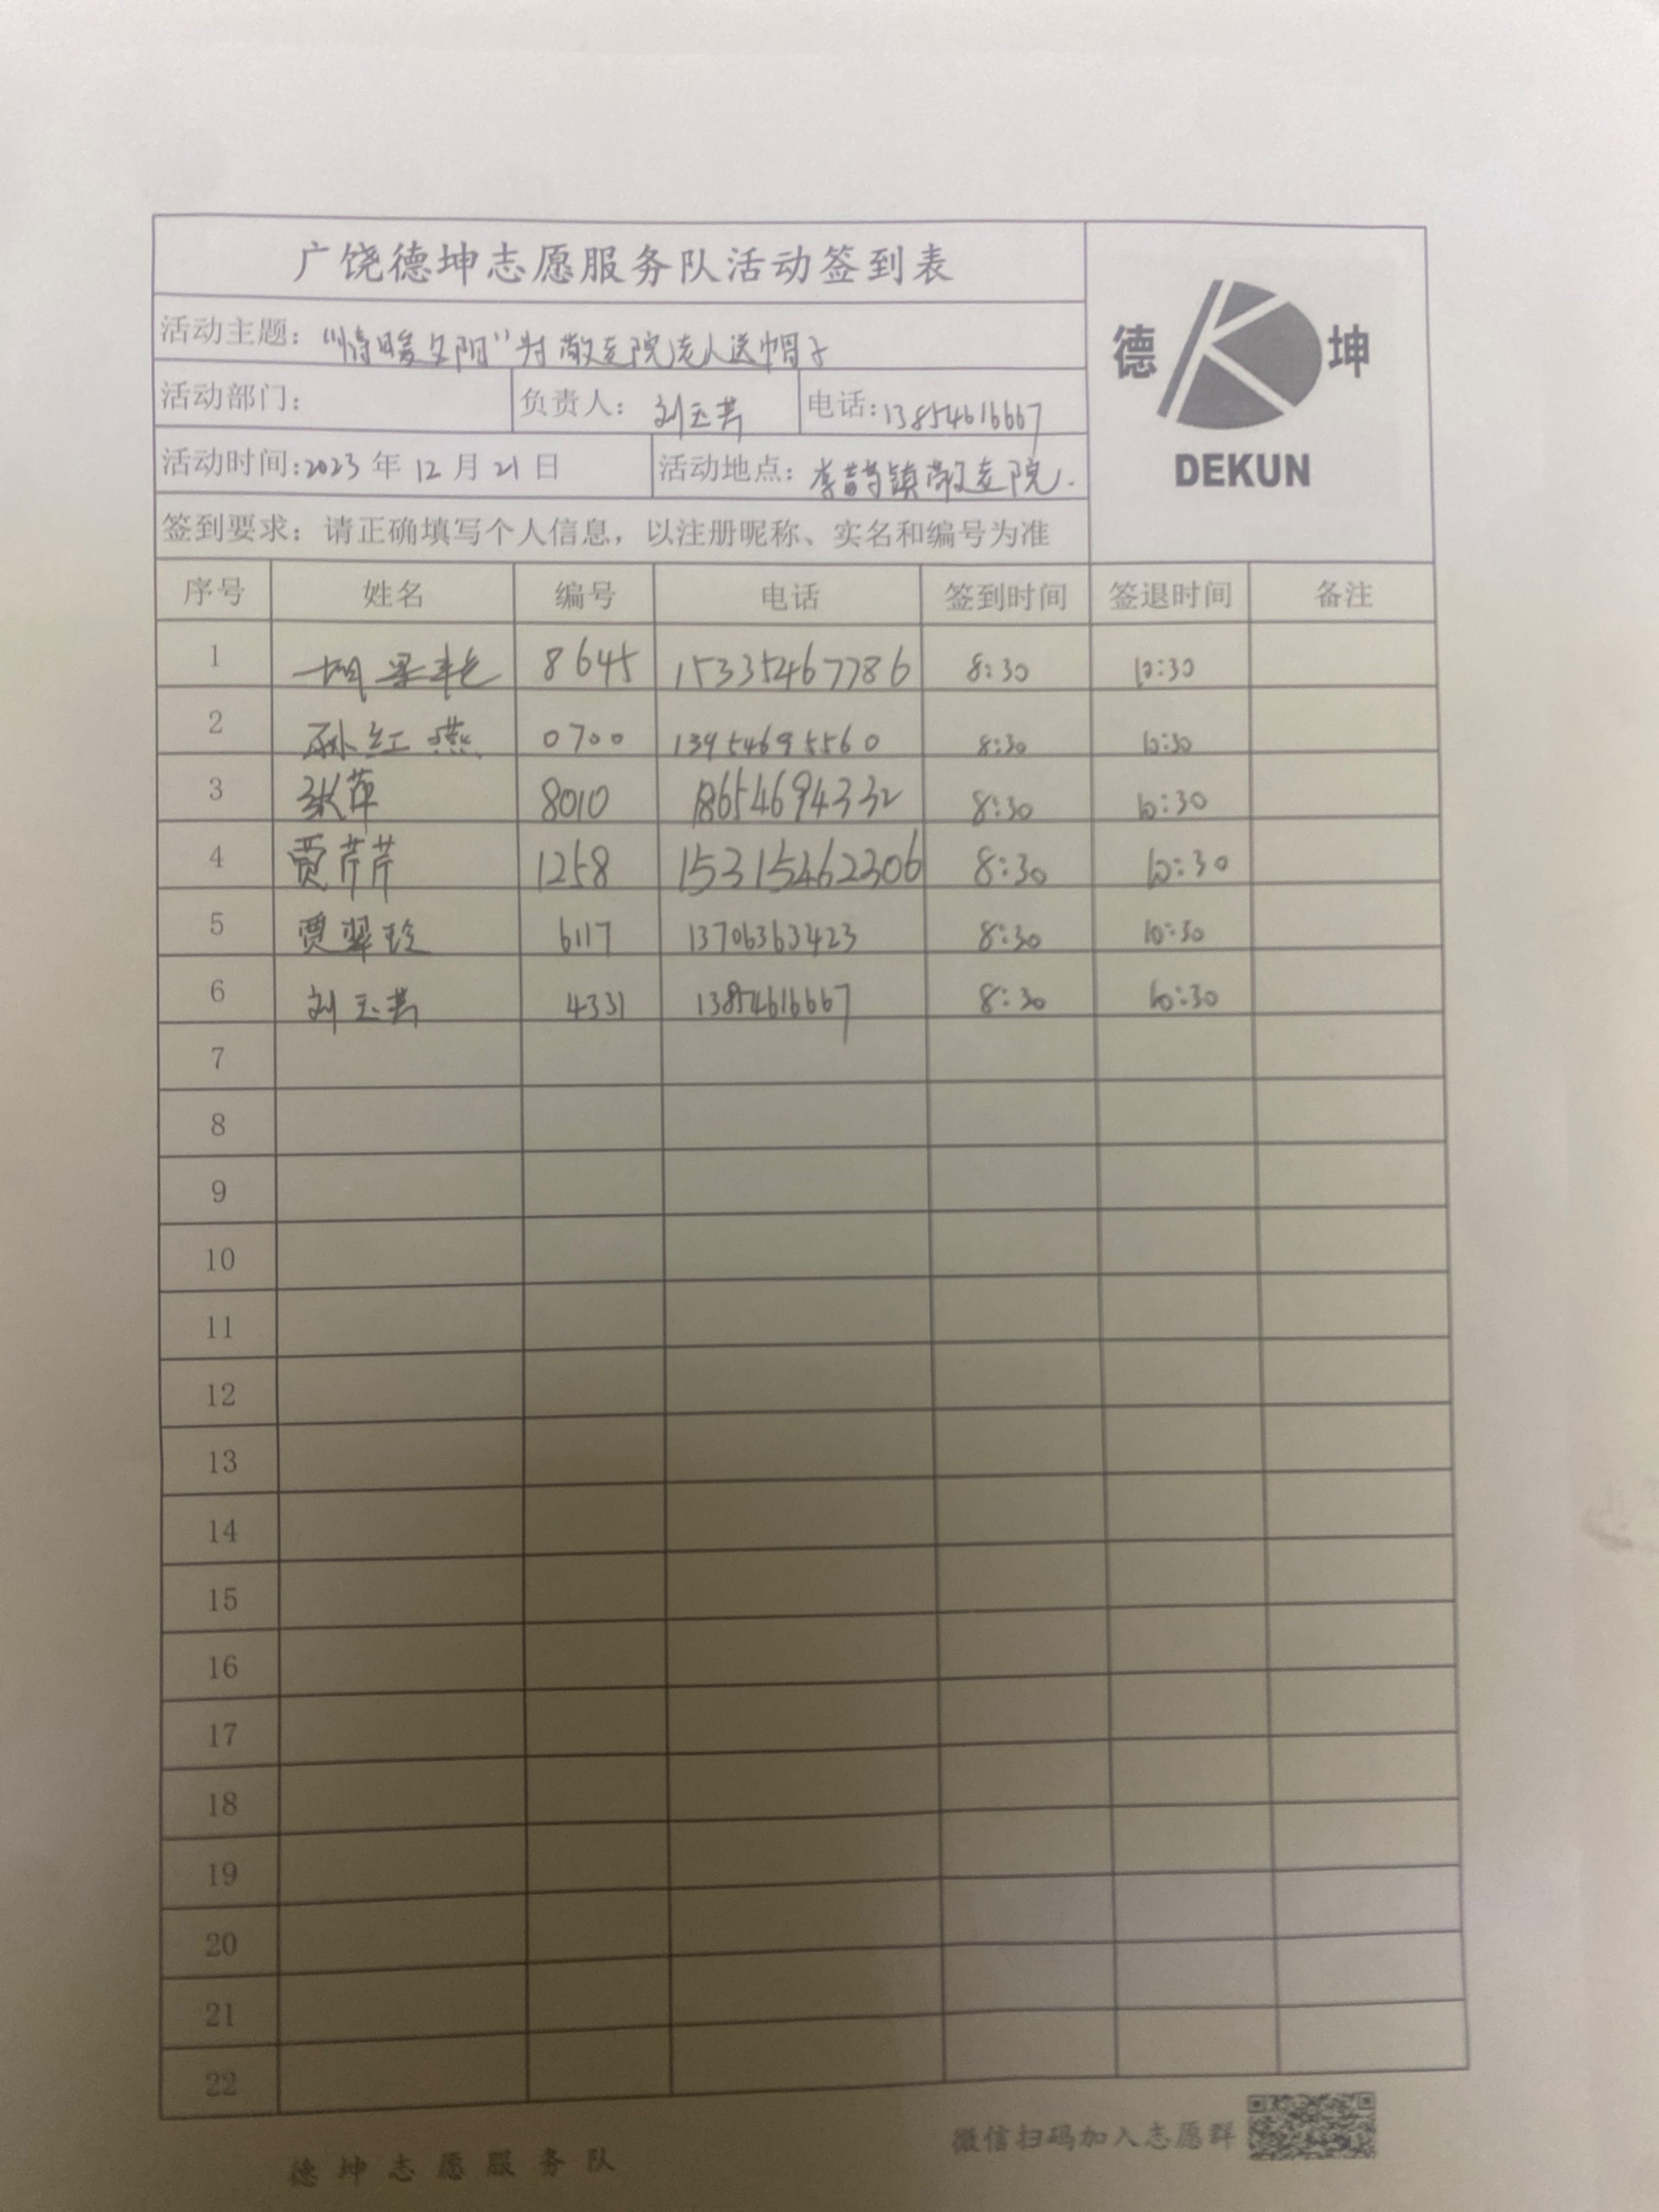 广饶德坤志愿服务队活动签到表
德 坤
DEKUN
活动主题：“情暖夕阳”为敬老院老人送帽子
活动部门： 负责人：刘玉芳 电话：13854616667
活动时间：2023年12月21日 活动地点：李鹊镇敬老院.
签到要求：请正确填写个人信息，以注册昵称、实名和编号为准
序号 姓名 编号 电话 签到时间 签退时间 备注
1 8645 15335467786 8:30 10:30
2 孙红燕 0700 13954695560 8:30 10:30
3 张萍 8010 18654694332 8:30 10:30
4 贾芹芹 1258 15315462306 8:30 10:30
5 贾翠玲 6117 13706363423 8:30 10:30
6 刘玉芳 4331 13854616667 8:30 10:30
7
8
9
10
11
12
13
14
15
16
17
18
19
20
21
22
德坤志愿服务队
微信扫码加入志愿群